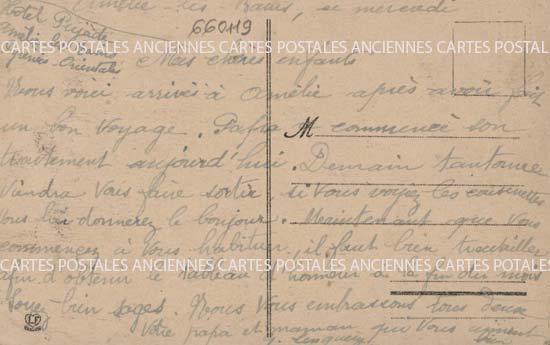 Amélie-les-Bains, ce mercredi
Hôtel Pujade
Amélie les Bains
Pyrénées-Orientales
660119
CARTES POSTALES ANCIENNES CARTES POSTALES ANCIENNES CARTES POSTALES
Mes chères enfants
Nous voici arrivés à Amélie après avoir fait
un bon voyage. Papa M commencé son
CARTES POSTALES ANCIENNES CARTES POSTALES ANCIENNES CARTES POSTALES
traitement aujourd'hui. Demain tantonnee
viendra vous faire sortir, si vous voyez les cousinettes
vous leur donnerez le bonjour. Maintenant que vous
commencez à vous habituer, il faut bien travailler
CARTES POSTALES ANCIENNES CARTES POSTALES ANCIENNES CARTES POSTALES
afin d'obtenir le tableau d'honneur à la fin des mois
Soyez bien sages. Nous vous embrassons tous deux
Votre papa et maman qui vous aiment
bien
LF